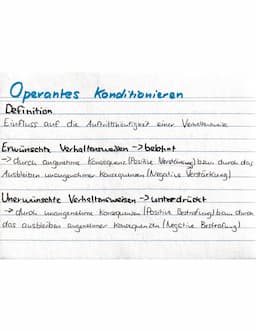 Operantes Konditionieren
Definition
Einfluss auf die Auftrittshäufigkeit einer Verhaltensweise
Erwünschte Verhaltensweisen -> belohnt
-> durch angenehme Konsequenz (Positive Verstärkung) bzw. durch das
Ausbleiben unangenehmer Konsequenzen (Negative Verstärkung)
Unerwünschte Verhaltensweisen -> unterdrückt
-> durch unangenehme Konsequenzen (Positive Bestrafung) bzw. durch
das ausbleiben angenehmer Konsequenzen (Negative Bestrafung)